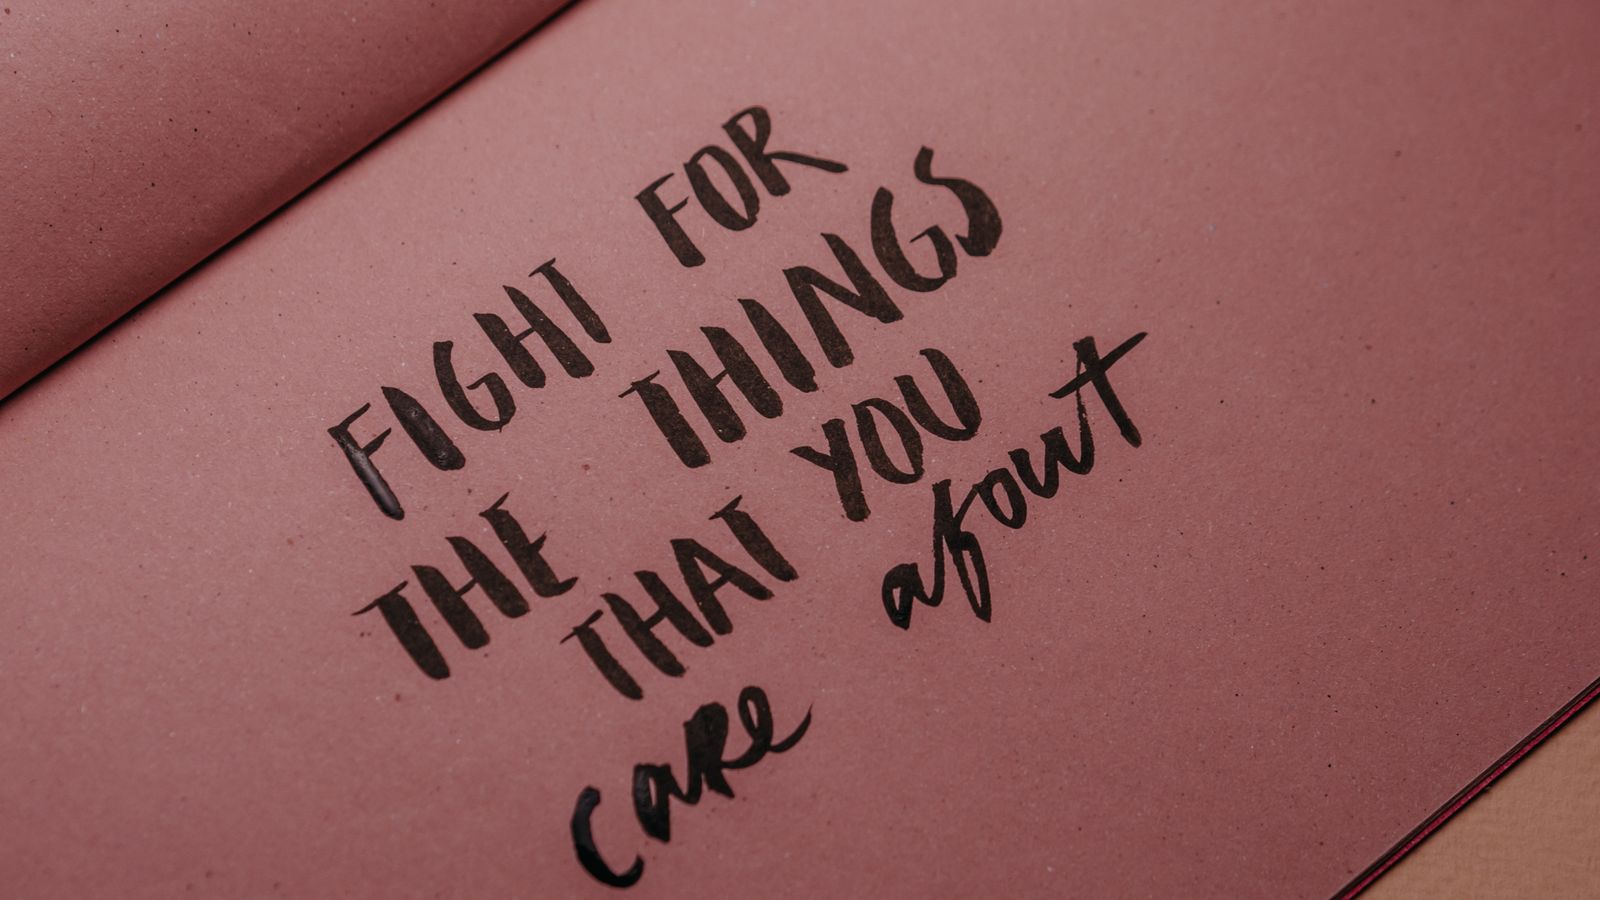 FIGHT FOR
THE THINGS
THAT YOU
care about